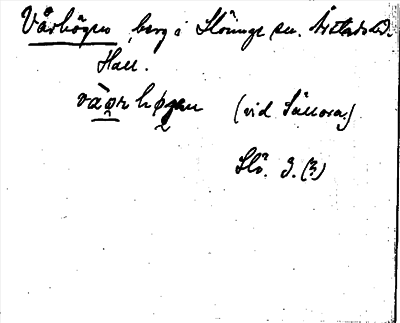 Vårhögen, berg i Slöinge sn. Årstads hd.
Hall.
(vid Sällora.)
Slö. 9. (3)